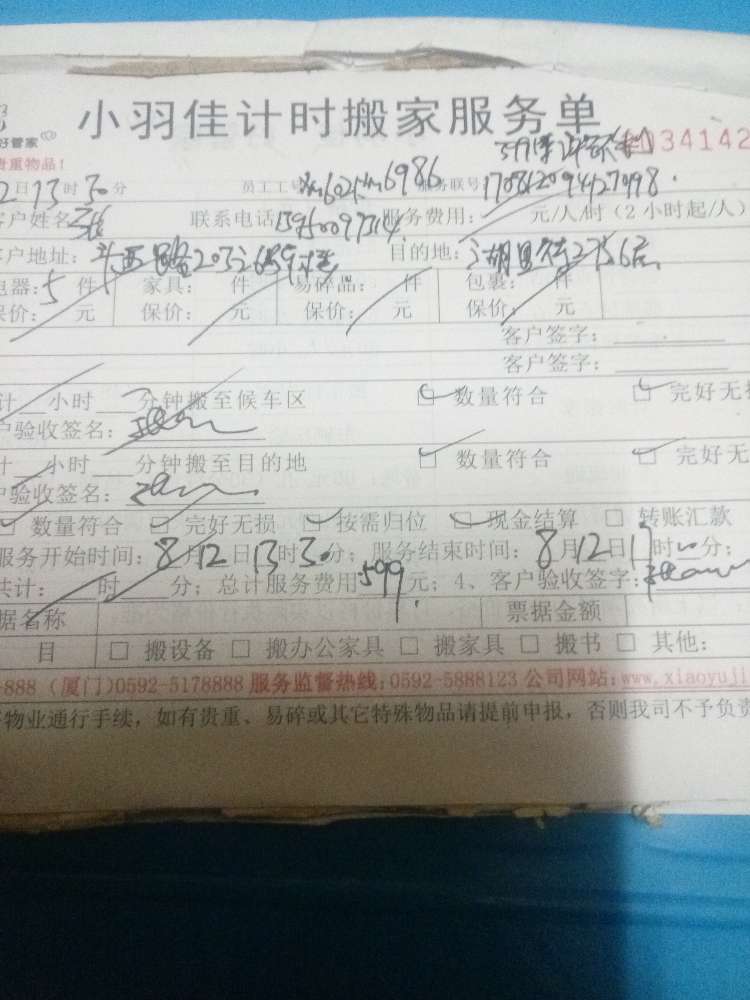 小羽佳计时搬家服务单
好管家
034142
贵重物品！
2日13时30分 员工工号 6986 服务联号
客户姓名 联系电话 服务费用： 元/人/时（2小时起/人）
客户地址： 目的地：
电器：5件 家具： 件 易碎品： 件 包裹： 件
保价： 元 保价： 元 保价： 元 保价： 元
客户签字：
客户签字：
计 小时 分钟搬至候车区 数量符合 完好无损
户验收签名：
计 小时 分钟搬至目的地 数量符合 完好无
户验收签名：
数量符合 完好无损 按需归位 现金结算 转账汇款
服务开始时间：8月12日13时30分；服务结束时间：8月12日17时 分；
共计： 时 分；总计服务费用：599元；4、客户验收签字：
据名称 票据金额
目 搬设备 搬办公家具 搬家具 搬书 其他：
-888 (厦门)0592-5178888 服务监督热线：0592-5888123 公司网站：www.xiaoyuji
物业通行手续，如有贵重、易碎或其它特殊物品请提前申报，否则我司不予负责